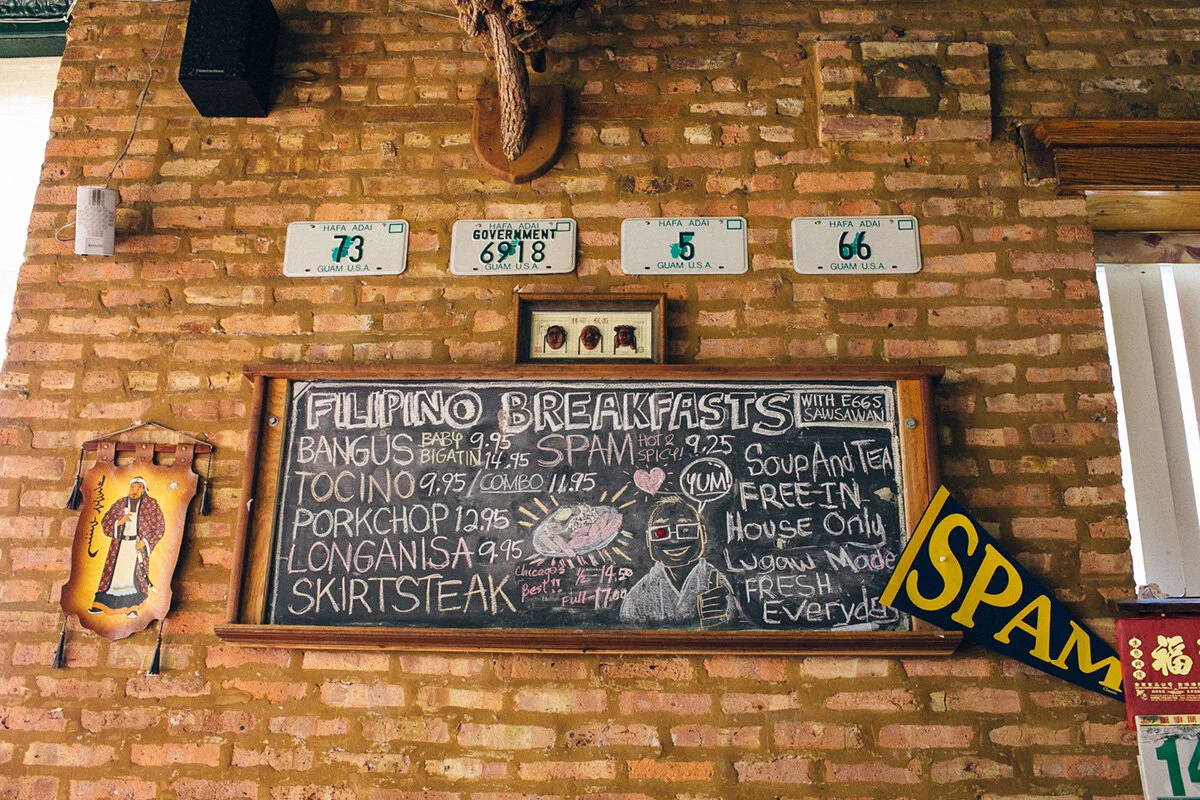 HAFA ADAI
73
GUAM U.S.A.
HAFA ADAI
GOVERNMENT
6918
GUAM U.S.A.
HAFA ADAI
5
GUAM U.S.A.
HAFA ADAI
66
GUAM U.S.A.
FILIPINO BREAKFASTS
WITH EGGS
SAWSAWAN
BANGUS BABY 9.95
BIGATIN 14.95
SPAM HOT & SPICY! 9.25
TOCINO 9.95/COMBO 11.95
PORKCHOP 12.95
LONGANISA 9.95
SKIRTSTEAK
Chicago's Best!!
1/2-14.50
Full-17.00
YUM!
Soup And TEA
FREE-IN
House Only
Lugaw Made
FRESH
Everyday
SPAM
福
14